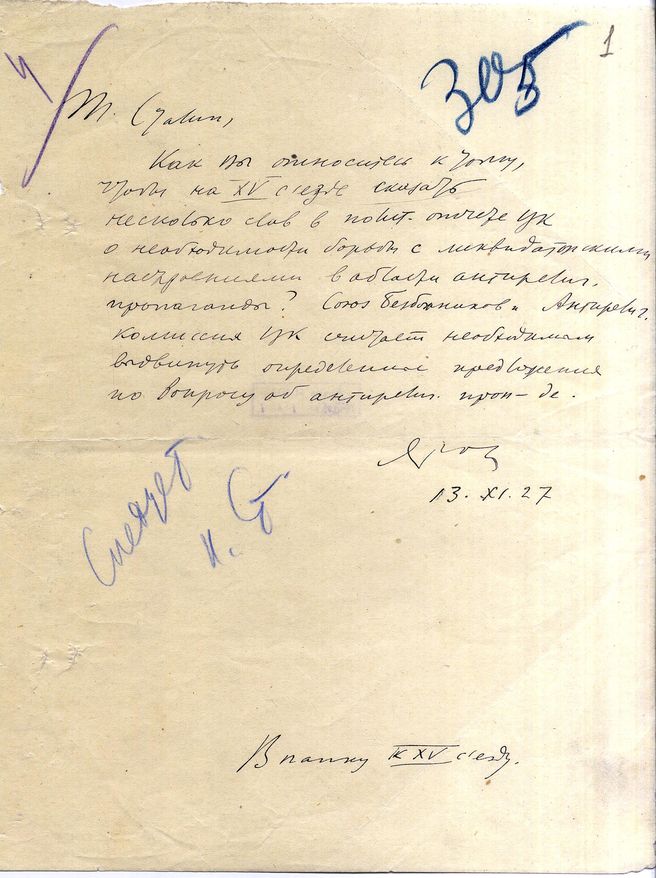 305
1
Т. Сталин,
Как Вы относитесь к тому,
чтобы на XV с'езде сказать
несколько слов в полит. отчете ЦК
о необходимости борьбы с ликвидаторскими
настроениями в области антирелиг.
пропаганды? Союз Безбожников и Антирелиг.
комиссия ЦК считает необходимым
выдвинуть определенные предложения
по вопросу об антирелиг. проп-де.
13.XI.27
Следует
И. Ст.
В папку к XV с'езду.